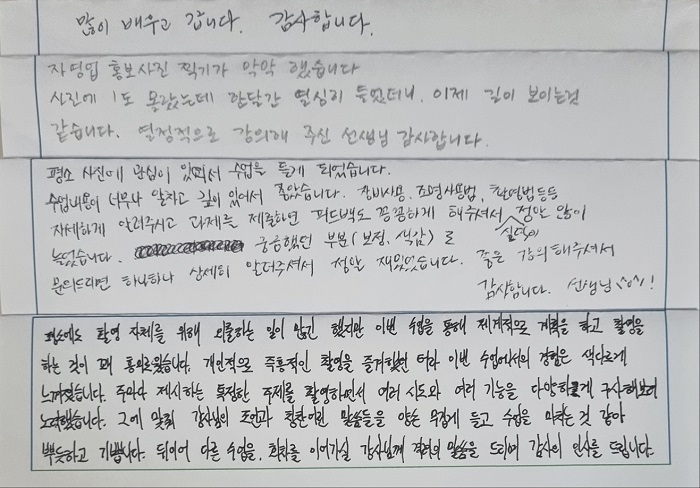 많이 배우고 갑니다. 감사합니다.
자영업 홍보사진 찍기가 막막 했습니다
사진에 1도 몰랐는데 한달간 열심히 들었더니, 이제 길이 보이는것
같습니다. 열정적으로 강의해 주신 선생님 감사합니다.
평소 사진에 관심이 있어서 수업을 듣게 되었습니다.
수업내용이 너무나 알차고 깊이 있어서 좋았습니다. 장비사용, 조명사용법, 촬영법등등
자세하게 알려주시고 과제를 제출하면 피드백도 꼼꼼하게 해주셔서 실력이 정말 많이
늘었습니다. 궁금했던 부분(보정, 색감)로
문의드리면 하나하나 상세히 알려주셔서 정말 재밌었습니다. 좋은 강의해주셔서
감사합니다. 선생님 ^o^!
평소에도 촬영 자체를 위해 외출하는 일이 많긴 했지만 이번 수업을 통해 체계적으로 계획을 하고 촬영을
하는 것이 꽤 흥미로웠습니다. 개인적으로 즉흥적인 촬영을 즐겨했던 터라 이번 수업에서의 경험은 색다르게
느껴졌습니다. 주마다 제시하는 특정한 주제를 촬영하면서 여러 시도와 여러 기능을 다양하게 구사해보려
노력했습니다. 그에 맞춰 강사님의 조언과 칭찬어린 말씀들을 양손 무겁게 들고 수업을 마치는 것 같아
뿌듯하고 기쁩니다. 뒤이어 다른 수업을, 회차를 이어가실 강사님께 격려의 말씀을 드리며 감사의 인사를 드립니다.